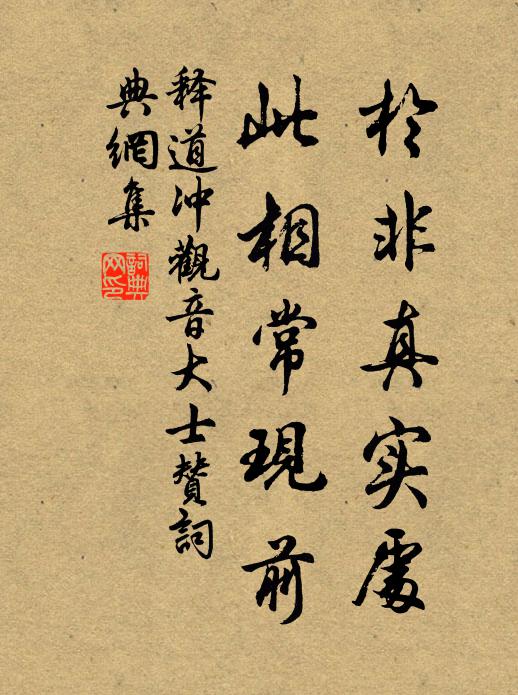 於非真实處
此相常現前
释道冲觀音大士赞詞
典網集
詞典
网印